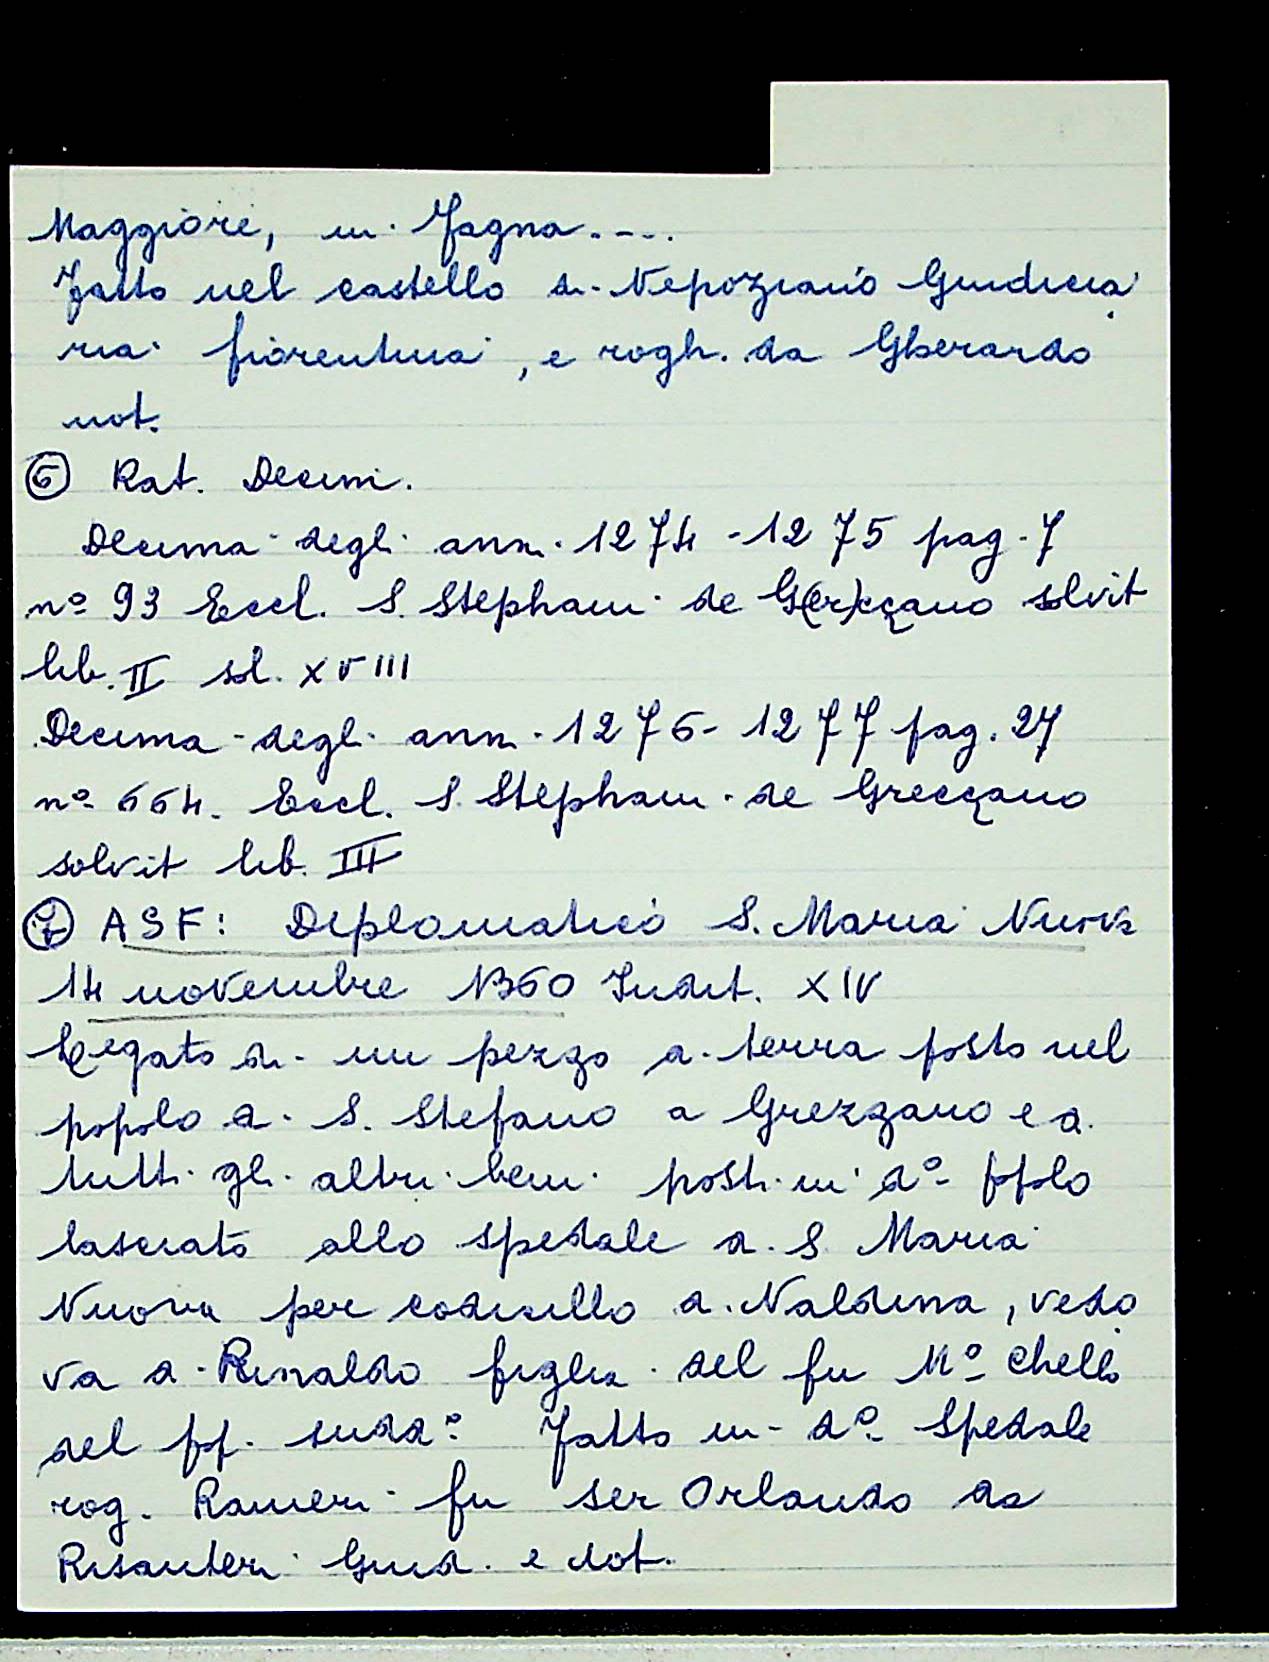 Maggiore, in Fagna.....
Fatto nel castello di Nepoziano Giudicia
ria fiorentina, e rogh. da Gherardo
not.
⑥ Rat. Decim.
Decima degli anni 1274-1275 pag. 7
nº 93 Eccl. S. Stephani de G(er)eçano solvit
lib. II sol. XVIII
Decima degli anni 1276-1277 pag. 27
nº 664. Eccl. S. Stephani de Grecçano
solvit lib. III
⑦ ASF: Diplomatico S. Maria Nuova
14 novembre 1360 Indit. XIV
Legato di un pezzo di terra posto nel
popolo di S. Stefano a Grezzano e di
tutti gli altri beni posti in dº popolo
lasciato allo spedale di S. Maria
Nuova per codicillo di Naldina, vedo
va di Rinaldo figlia del fu Mº Chello
del pp. sudd.º Fatto in dº Spedale
rog. Ranieri fu ser Orlando da
Risanteri Giud. e not.